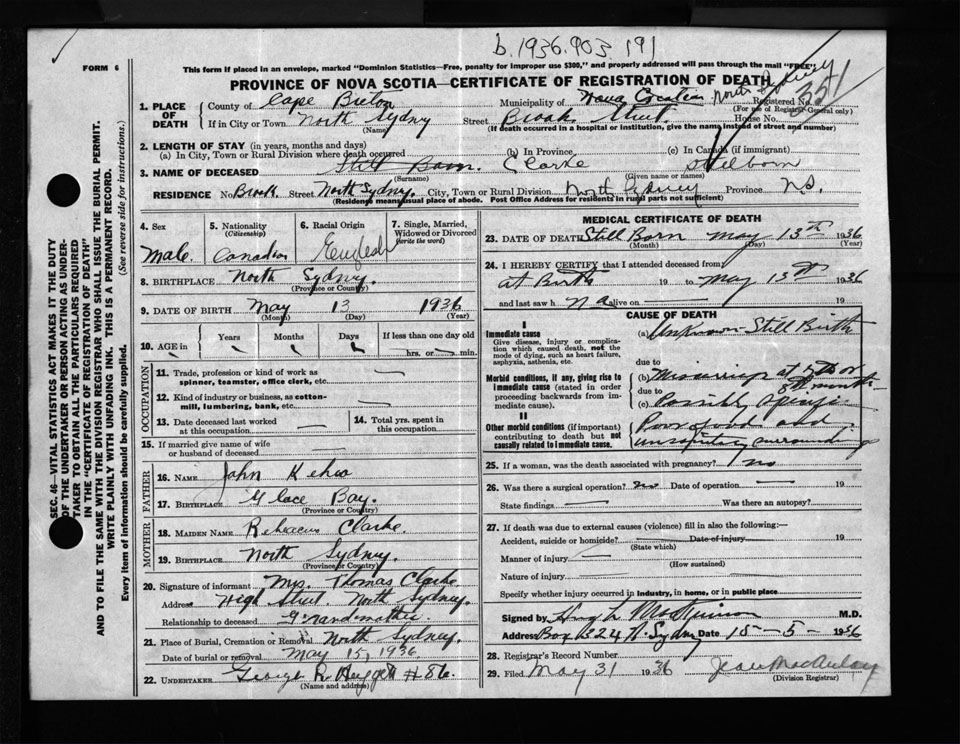 b.1936.903 191
FORM 6
This form if placed in an envelope, marked "Dominion Statistics—Free, penalty for improper use $300," and properly addressed will pass through the mail "FREE".
PROVINCE OF NOVA SCOTIA—CERTIFICATE OF REGISTRATION OF DEATH
1. PLACE OF DEATH
County of Cape Breton Municipality of Nova Scotia North Sydney Registered No. 351
(For use of Registrar General only)
If in City or Town North Sydney Street Brook Street. House No.
(Name) (If death occurred in a hospital or institution, give the name instead of street and number)
2. LENGTH OF STAY (in years, months and days)
(a) In City, Town or Rural Division where death occurred (b) In Province (c) In Canada (if immigrant)
3. NAME OF DECEASED Still Born. Clarke Stilborn
(Surname) (Given name or names)
RESIDENCE No. Brook. Street North Sydney. City, Town or Rural Division North Sydney Province N.S.
(Residence means usual place of abode. Post Office Address for residents in rural parts not sufficient)
4. Sex
Male
5. Nationality
(Citizenship)
Canadian
6. Racial Origin
English
7. Single, Married, Widowed or Divorced
(write the word)
8. BIRTHPLACE North Sydney.
(Province or Country)
9. DATE OF BIRTH May 13 1936
(Month) (Day) (Year)
10. AGE in
Years Months Days If less than one day old
hrs. or min.
OCCUPATION
11. Trade, profession or kind of work as
spinner, teamster, office clerk, etc.
12. Kind of industry or business, as cotton-
mill, lumbering, bank, etc.
13. Date deceased last worked
at this occupation
14. Total yrs. spent in
this occupation
15. If married give name of wife
or husband of deceased
FATHER
16. NAME John Kehoe
17. BIRTHPLACE Glace Bay.
(Province or Country)
MOTHER
18. MAIDEN NAME Clarke.
19. BIRTHPLACE North Sydney.
(Province or Country)
20. Signature of informant Mrs. Thomas Clarke
Address High Street. North Sydney.
Relationship to deceased Grandmother
21. Place of Burial, Cremation or Removal North Sydney.
Date of burial or removal May 15, 1936
22. UNDERTAKER George R. #86.
(Name and address)
MEDICAL CERTIFICATE OF DEATH
23. DATE OF DEATH Still Born May 13th 1936
(Month) (Day) (Year)
24. I HEREBY CERTIFY that I attended deceased from
at Birth 19 to May 13th 1936
and last saw h alive on 19
CAUSE OF DEATH
I
Immediate cause
Give disease, injury or complica-
tion which caused death, not the
mode of dying, such as heart failure,
asphyxia, asthenia, etc.
(a) Unknown Still Birth
due to
Morbid conditions, if any, giving rise to
immediate cause (stated in order
proceeding backwards from im-
mediate cause).
(b) Miscarriage at 7th or
8th month
due to
(c) Possibly
II
Other morbid conditions (if important)
contributing to death but not
causally related to immediate cause.
Poor food and
unsanitary surroundings
25. If a woman, was the death associated with pregnancy? no
26. Was there a surgical operation? no Date of operation 19
State findings Was there an autopsy?
27. If death was due to external causes (violence) fill in also the following:—
Accident, suicide or homicide? Date of injury 19
(State which)
Manner of injury
(How sustained)
Nature of injury
Specify whether injury occurred in Industry, in home, or in public place
Signed by Hugh M.D.
Address Box 324 N. Sydney Date 15-5- 1936
28. Registrar's Record Number
29. Filed May 31 1936 Jean MacAulay
(Division Registrar)
SEC. 46—VITAL STATISTICS ACT MAKES IT THE DUTY
OF THE UNDERTAKER OR PERSON ACTING AS UNDER-
TAKER TO OBTAIN ALL THE PARTICULARS REQUIRED
IN THE "CERTIFICATE OF REGISTRATION OF DEATH"
AND TO FILE THE SAME WITH THE DIVISION REGISTRAR WHO SHALL ISSUE THE BURIAL PERMIT.
WRITE PLAINLY WITH UNFADING INK. THIS IS A PERMANENT RECORD.
Every item of information should be carefully supplied. (See reverse side for instructions.)